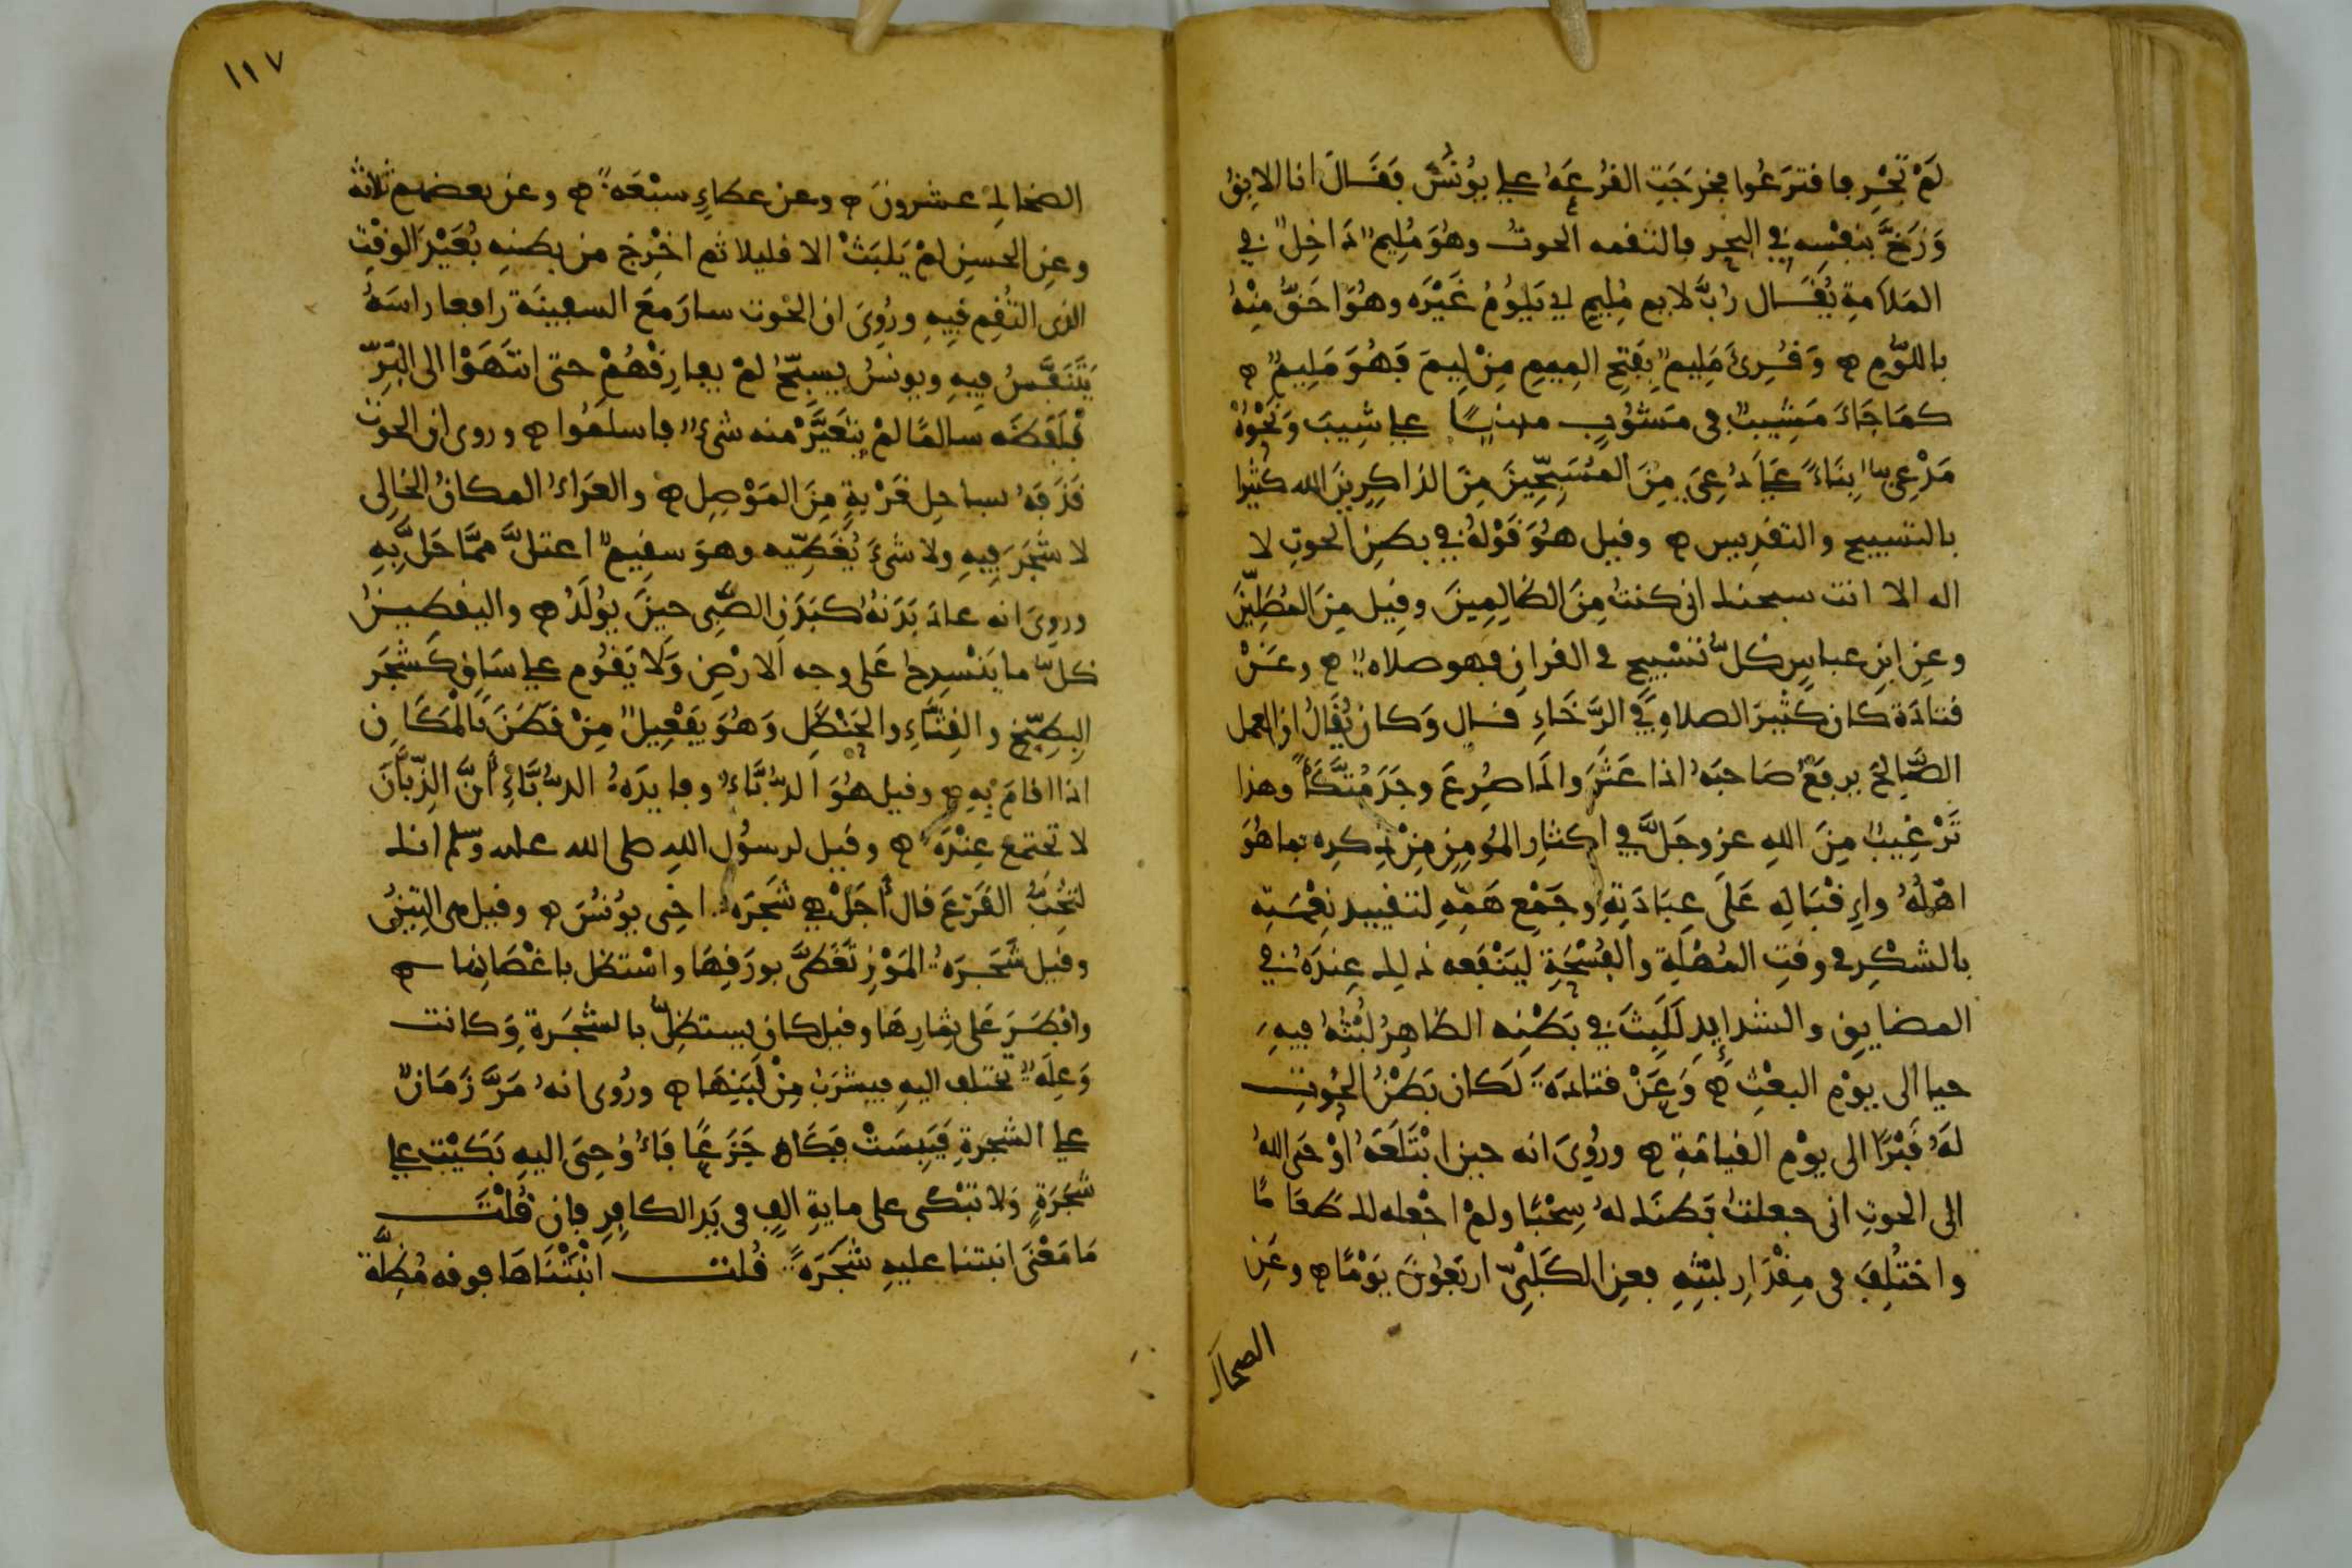 لَمْ تَجْرِ فاقترَعُوا فخرجَتِ القُرْعَةُ على يُونُسَ فقَالَ انا الابِقُ
وَزَجَّ بنفْسِه في البحرِ فالتقمه الحوتُ وهُوَ مُلِيمٌ دَاخِلٌ في
المَلَامةِ يُقَال رُبَّ لايم مُلِيمٍ اي يَلُومُ غَيْرَه وهُوَ احَقُّ مِنْهُ
باللّوْمِ ه وَقُرِئَ مَلِيمٌ بِفَتحِ المِيمِ مِنْ لِيمَ فَهُوَ مَلِيمٌ ه
كمَا جَاءَ مَشِيبٌ في مَشُوبٍ مبنيًا على شِيبَ وَنَحْوُهُ
مَدْعِيٌ بِنَاءً على دُعِيَ مِنَ المُسَبِّحِينَ مِنَ الذاكِرِينَ الله كثيرا
بالتسبيحِ والتقدِيسِ ه وقيل هُوَ قَوْلُهُ في بطنِ الحوتِ لا
اله الا انت سبحنك اني كنتُ مِنَ الظالِمِينَ وقِيل مِنَ المُصَلِّينَ
وعنِ ابنِ عباسٍ كلُّ تسْبِيحٍ في القرانِ فهو صلاةٌ ه وعَنْ
قتادَةَ كان كثيرَ الصلاةِ في الرَّخَاءِ قال وَكان يُقَالُ ان العمل
الصَّالحَ يرفعُ صَاحبَهُ اذا عَثَرَ واذَا صُرِعَ وجَدَ مُتَّكَأً وهذا
تَرْغِيبٌ مِنَ اللهِ عز وجَلَّ في اكثارِ المُومِنِ مِنْ ذِكرِه بما هُوَ
اهْلُهُ واِقْبَالِهِ عَلَى عِبَادَتِهِ وجَمْعِ هَمِّهِ لتقييدِ نِعْمَتِه
بالشكْرِ في وقتِ المُهْلَةِ والفُسْحَةِ ليَنْفَعه ذلِك عِندَهُ في
المضايِقِ والشدايِدِ لَلَبِثَ في بَطْنِه الظاهِرُ لُبْثُهُ فيهِ
حيا الى يوْمِ البعْثِ ه وَعَنْ قتادَةَ لَكان بَطْنُ الحُوتِ
لَهُ قَبْرًا الى يوْمِ القيامَةِ ه ورُوِيَ انه حين ابْتَلَعَهُ اوْحَى اللهُ
الى الحوتِ اني جعلتُ بَطنَك لهُ سِجْنًا ولمْ اجْعله لك طعَامًا
واختُلِفَ في مِقْدَارِ لبْثِهِ فعنِ الكَلْبِيّ اربَعُونَ يَوْمًا ه وعَنِ
الضحاك
١١٧
الضحاكِ عشرونَ ه وعن عطاءٍ سبْعَةٌ ه وعن بعضهم ثلاثة
وعنِ الحسنِ لمْ يَلبَثْ الا قليلا ثم اخْرِجَ من بطنِه بُعَيْدَ الوقْتِ
الذي التُقِم فِيهِ ورُوِيَ ان الحُوت سارَ مَعَ السفينَة رافعا راسَهُ
يَتَنَفَّسُ فِيهِ ويونسُ يسبِّحُ لمْ يفارِقْهُمْ حتى انتَهَوْا الى البَرِّ
فلَفَظَه سالمًا لمْ يتغَيَّرْ منه شيءٌ فاسلَمُوا ه وروى ان الحوت
قَذَفَهُ بساحِل قَرْيةٍ مِنَ المَوْصِلِ ه والعَرَاءُ المكانُ الخَالِي
لا شجَرَ فِيهِ ولا شيْءَ يُغَطِّيه وهوَ سقِيمٌ اعتلَّ ممَّا حَلَّ بِهِ
ورويَ انه عادَ بَدَنهُ كبَدَنِ الصَّبِي حِينَ يُولَدُ ه واليقطِينُ
كلُّ ما يَنْسدِحُ عَلى وجه الارْضِ وَلَا يَقُوم على سَاقٍ كشَجَر
البِطِّيخِ والقِثّاءِ والحَنْظَلِ وَهُوَ يَفْعِيلٌ مِنْ قَطَنَ بَالْمَكَانِ
اذا اقامَ بِهِ ه وقيل هُوَ الدُّبَّاءُ وفايدَةُ الدُّبَّاءِ أَنَّ الذِّبَّانَ
لا تجتمع عِنْدَهُ ه وقيل لرسُول اللهِ صلى الله عليه وسلم انك
لتُحِبُّ القَرْعَ قال أَجَلْ هي شَجَرَة اخِي يُونُسَ ه وقيل هي التِينُ
وقيل شَجَرَةُ المَوْزِ تَغَطَّى بورَقِهَا واسْتظل باغْصَانِها ه
وافطَرَ عَلى ثِمَارِهَا وقيل كان يستظِلُّ بالشجَرةِ وَكانت
وَعِلَةٌ تختلف اليهِ فيشرَبُ مِنْ لَبَنِهَا ه ورُوِي انهُ مَرَّ زَمَانٌ
على الشجرةِ فَيَبِسَتْ فبَكَى جَزَعًا فَاُوْحِيَ اليهِ بَكَيْتَ على
شَجَرَةٍ وَلا تبْكي على مايةِ الفٍ في يَدِ الكافِرِ فان قُلْتَ
مَا مَعْنَى انبتنا عليهِ شَجَرَةً قُلت انْبَتْنَاهَا فوقه مُظِلَّة